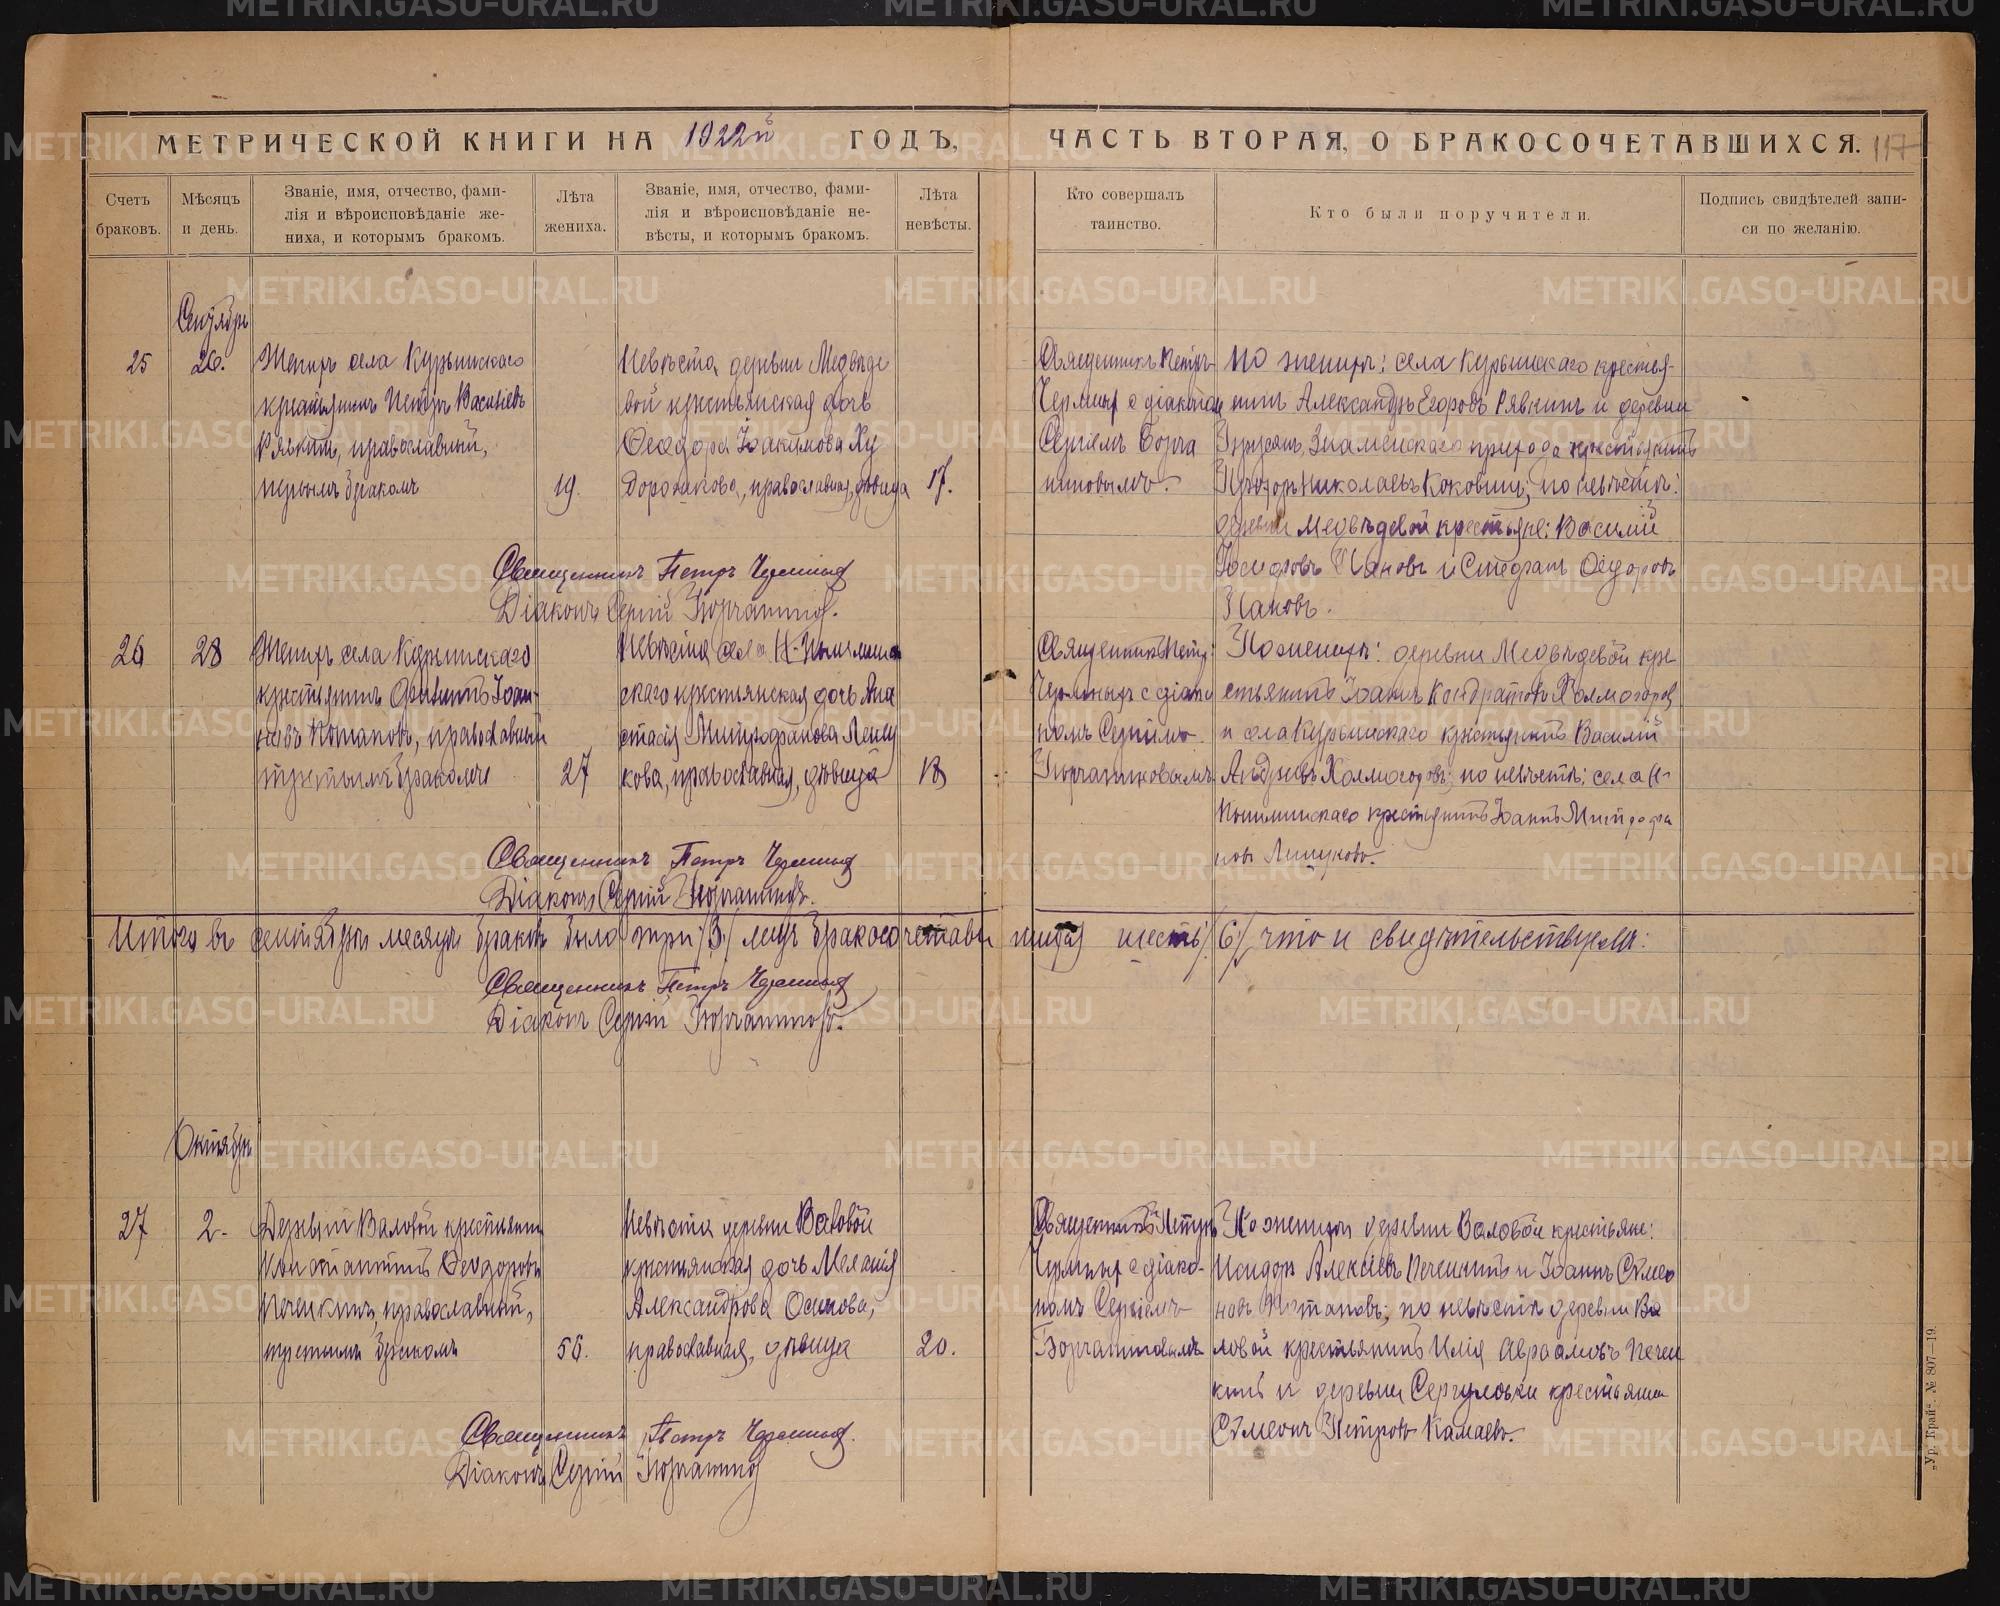 МЕТРИЧЕСКОЙ КНИГИ НА 1922й ГОДЪ,
ЧАСТЬ ВТОРАЯ, О БРАКОСОЧЕТАВШИХСЯ. 117
Счетъ браковъ.
Мѣсяцъ и день.
Званіе, имя, отчество, фами-
лія и вѣроисповѣданіе же-
ниха, и которымъ бракомъ.
Лѣта жениха.
Званіе, имя, отчество, фами-
лія и вѣроисповѣданіе не-
вѣсты, и которымъ бракомъ.
Лѣта невѣсты.
Кто совершалъ таинство.
Кто были поручители.
Подпись свидѣтелей запи-
си по желанію.
Сентябрь
25
26.
Женихъ села Курьинскаго
крестьянинъ Петръ Васильевъ
Рявкинъ, православный,
первымъ бракомъ
19.
Невѣста, деревни Медвѣде
вой крестьянская дочь
Ѳеодора Іоакимова Ху
дорожкова, православная, дѣвица
17.
Священникъ Петръ
Черемныхъ с діакономъ
Сергіемъ
По женихѣ: села Курьинскаго крестья-
нинъ Александръ Егоровъ Рявкинъ и деревни
Знаменскаго прихода крестьянинъ
Николаевъ Коковинъ; по невѣстѣ:
деревни Медвѣдевой крестьяне: Василій
Пановъ и Стефанъ Ѳедоровъ
Пановъ.
Священникъ Петръ Черемныхъ
Діаконъ Сергій
26
28
Женихъ села Курьинскаго
крестьянинъ Іоан-
новъ Потаповъ, православный
третьимъ бракомъ
27
Невѣста села Н-Пышмин
скаго крестьянская дочь Ана
стасія Митрофанова
кова, православная, дѣвица
18
Священникъ Петръ
Черемныхъ с діако
номъ Сергіемъ
По женихѣ: деревни Медвѣдевой кре
стьянинъ Іоаннъ Кондратовъ Холмогоровъ
и села Курьинскаго крестьянинъ Василій
Андреевъ Холмогоровъ; по невѣстѣ: села Н-
Пышминскаго крестьянинъ Іоаннъ Митрофа
новъ
Священникъ Петръ Черемныхъ
Діаконъ Сергій
Итого въ сентябрѣ месяцѣ браков было три /3/ лицъ бракосочетавшихся шесть /6/, что и свидѣтельствуемъ:
Священникъ Петръ Черемныхъ
Діаконъ Сергій
Октябрь
27
2-
Деревни Валовой крестьянинъ
Константинъ Ѳеодоровъ
Печенкинъ, православный,
третьимъ бракомъ
56.
Невѣста деревни Валовой
крестьянская дочь Меланія
Александрова Осинова,
православная, дѣвица
20.
Священникъ Петръ
Черемныхъ с діако-
номъ Сергіемъ
По женихѣ деревни Валовой крестьяне:
Алексіевъ Печенкинъ и Іоаннъ Симео
новъ Потаповъ; по невѣстѣ деревни Ва
ловой крестьянинъ Илія Авраамовъ Печен
кинъ и деревни Сергуловки крестьянин
Симеонъ Петровъ Камаевъ.
Священникъ Петръ Черемныхъ.
Діаконъ Сергій
„Ур. Край“. № 807—19.
METRIKI.GASO-URAL.RU